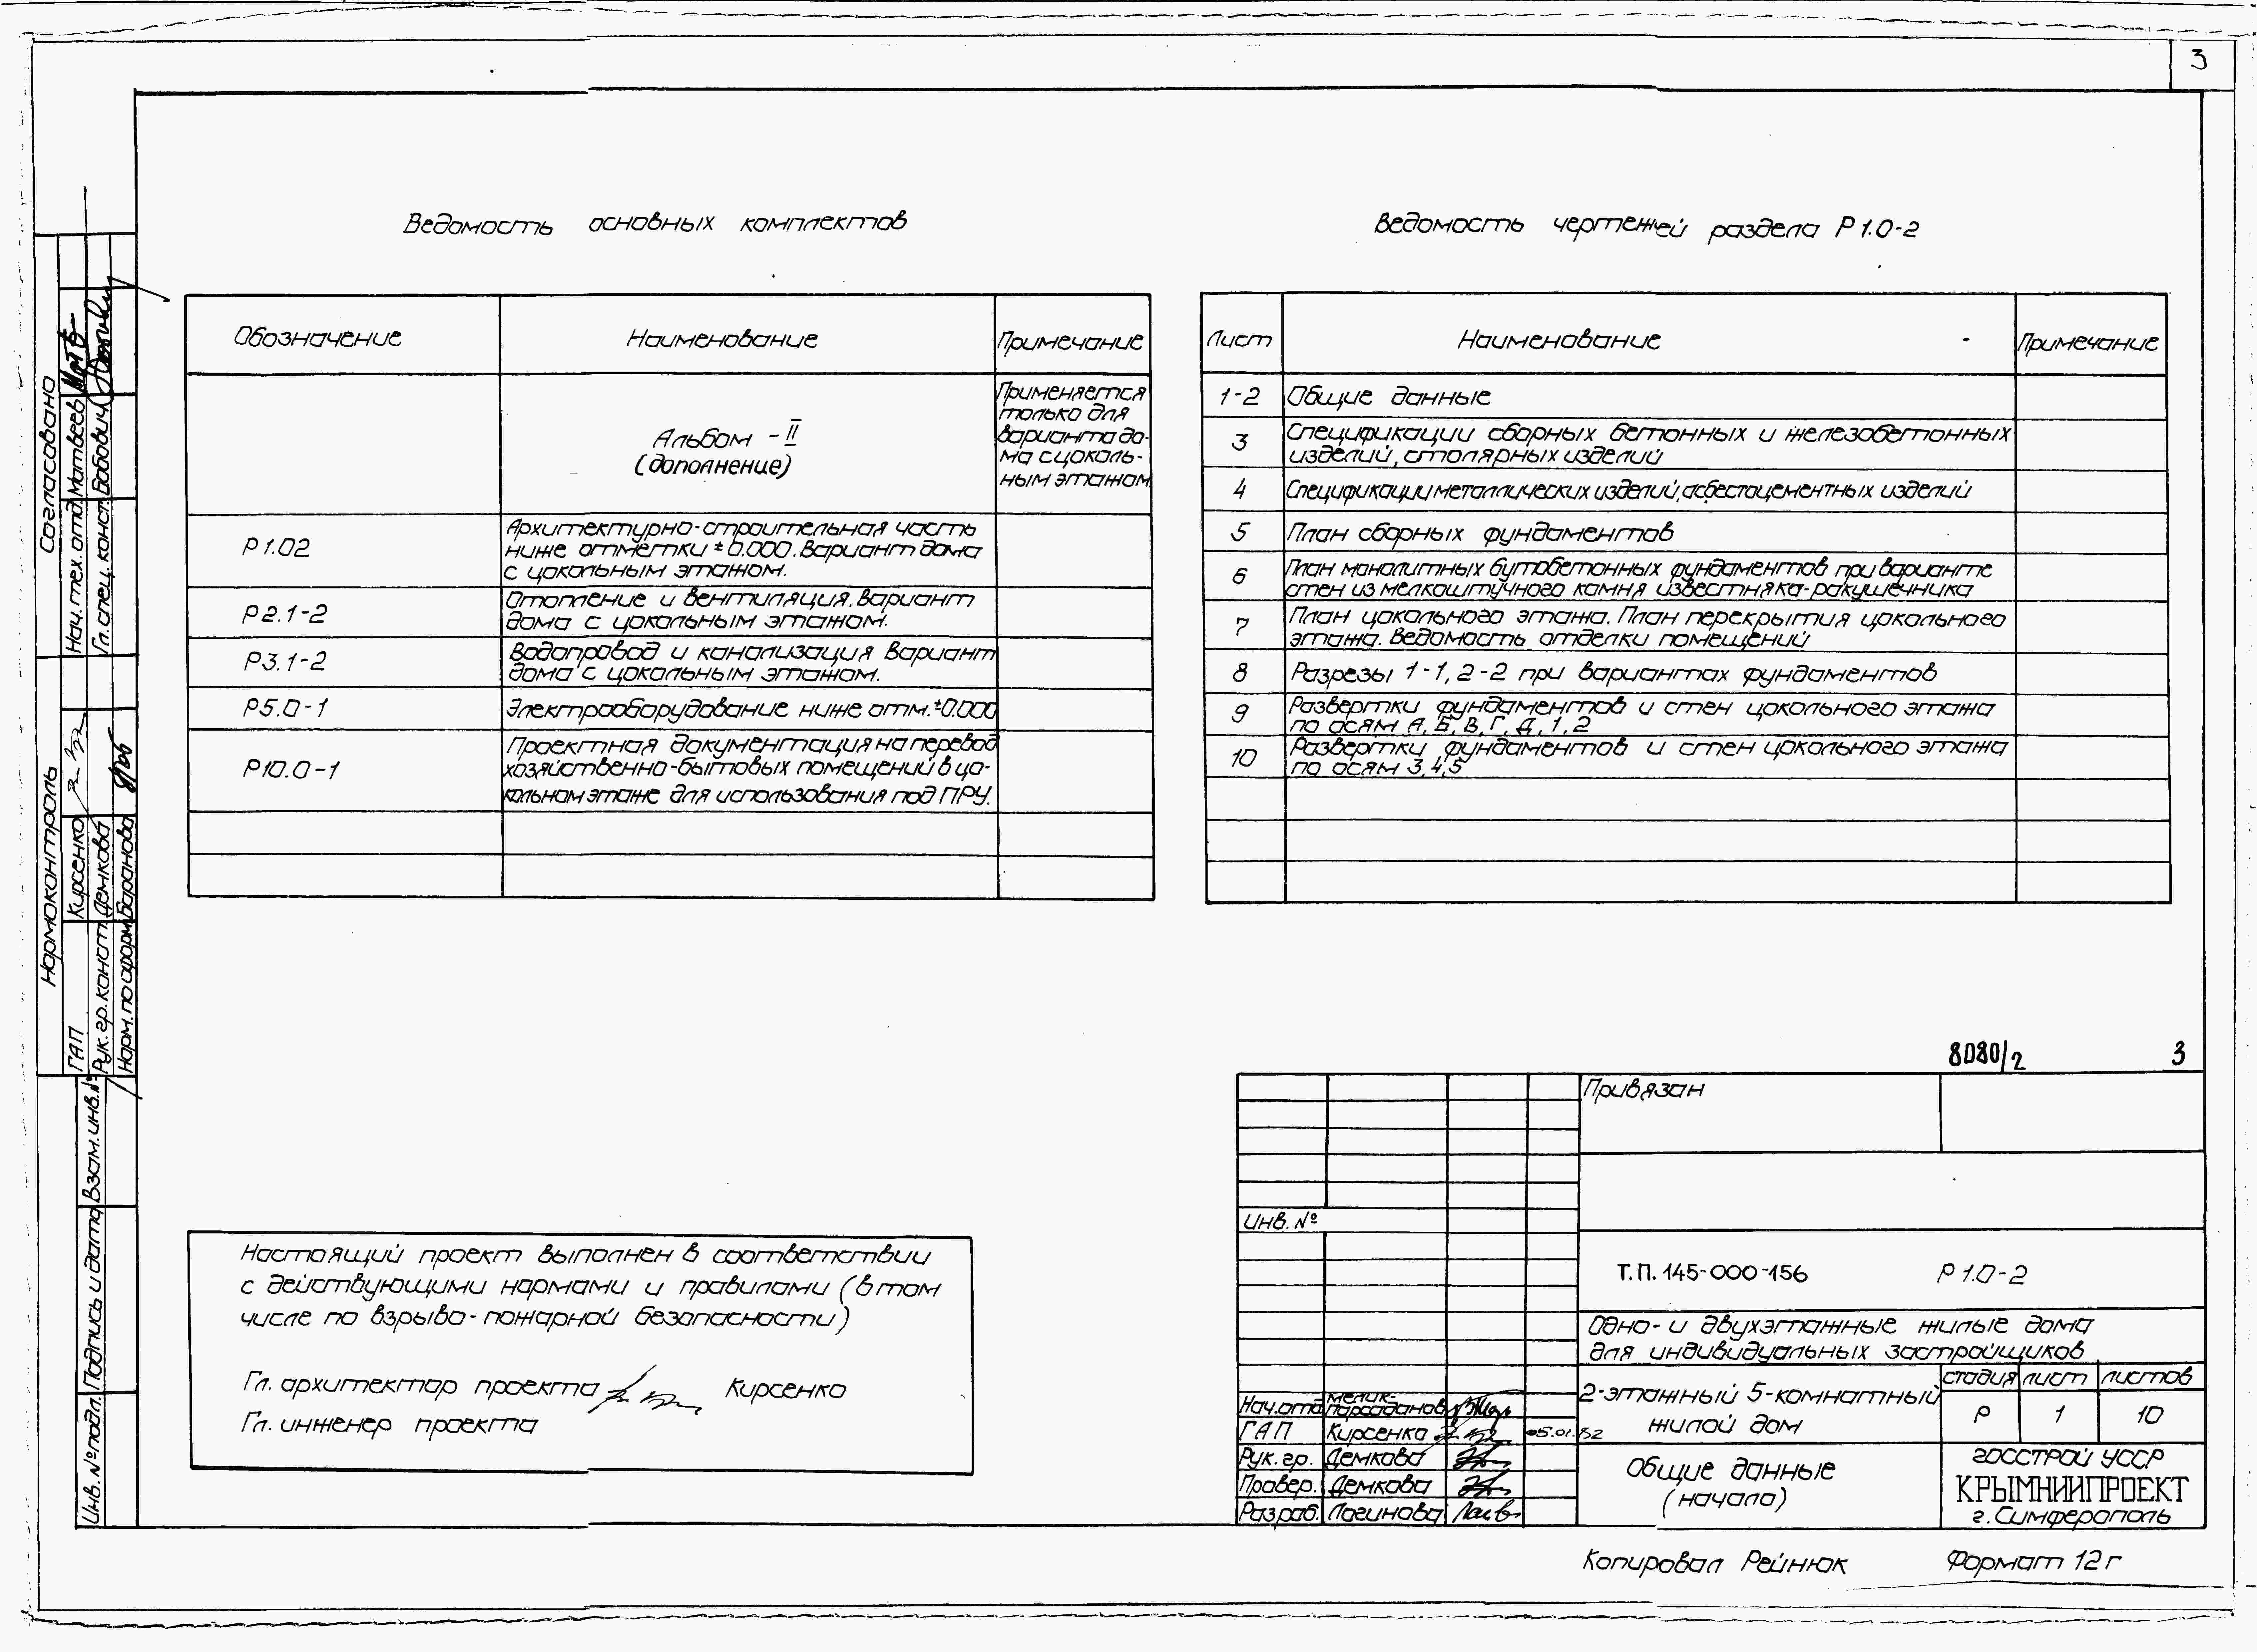 3
Ведомость основных комплектов
Обозначение Наименование Примечание
Альбом - II
(дополнение)
Применяется
только для
варианта до-
ма с цоколь-
ным этажом
Р 1.02
Архитектурно-строительная часть
ниже отметки ± 0.000. Вариант дома
с цокольным этажом.
Р 2.1-2
Отопление и вентиляция. Вариант
дома с цокольным этажом.
Р3.1-2
Водопровод и канализация Вариант
дома с цокольным этажом.
Р5.0-1
Электрооборудование ниже отм. ±0.000
Р10.0-1
Проектная документация на перевод
хозяйственно-бытовых помещений в цо-
кольном этаже для использования под ПРУ.
Ведомость чертежей раздела Р 1.0-2
Лист Наименование Примечание
1-2 Общие данные
3
Спецификации сборных бетонных и железобетонных
изделий, столярных изделий
4 Спецификации металлических изделий, асбестоцементных изделий
5 План сборных фундаментов
6
План монолитных бутобетонных фундаментов при варианте
стен из мелкоштучного камня известняка-ракушечника
7
План цокольного этажа. План перекрытия цокольного
этажа. Ведомость отделки помещений
8 Разрезы 1-1, 2-2 при вариантах фундаментов
9
Развертки фундаментов и стен цокольного этажа
по осям А, Б, В, Г, Д, 1, 2
10
Развертки фундаментов и стен цокольного этажа
по осям 3,4,5
Согласовано
Нач. тех. отд. Матвеев
Гл. спец. конст. Бобович
Нормоконтроль
ГАП Кирсенко
Рук. гр. конст. Демкова
Норм. по оформ. Баранова
Взам. инв. №
Подпись и дата
Инв. № подл.
Настоящий проект выполнен в соответствии
с действующими нормами и правилами (в том
числе по взрыво-пожарной безопасности)
Гл. архитектор проекта Кирсенко
Гл. инженер проекта
8080/2 3
Привязан
Инв. №
Т.П. 145-000-156 Р 1.0-2
Одно- и двухэтажные жилые дома
для индивидуальных застройщиков
2-этажный 5-комнатный
жилой дом
стадия лист листов
Р 1 10
Нач. отд. Мелик-
Парсаданов
ГАП Кирсенко
Рук. гр. Демкова
Провер. Демкова
Разраб. Логинова
Общие данные
(начало)
ГОССТРОЙ УССР
КРЫМНИИПРОЕКТ
г. Симферополь
Копировал Рейнюк Формат 12г